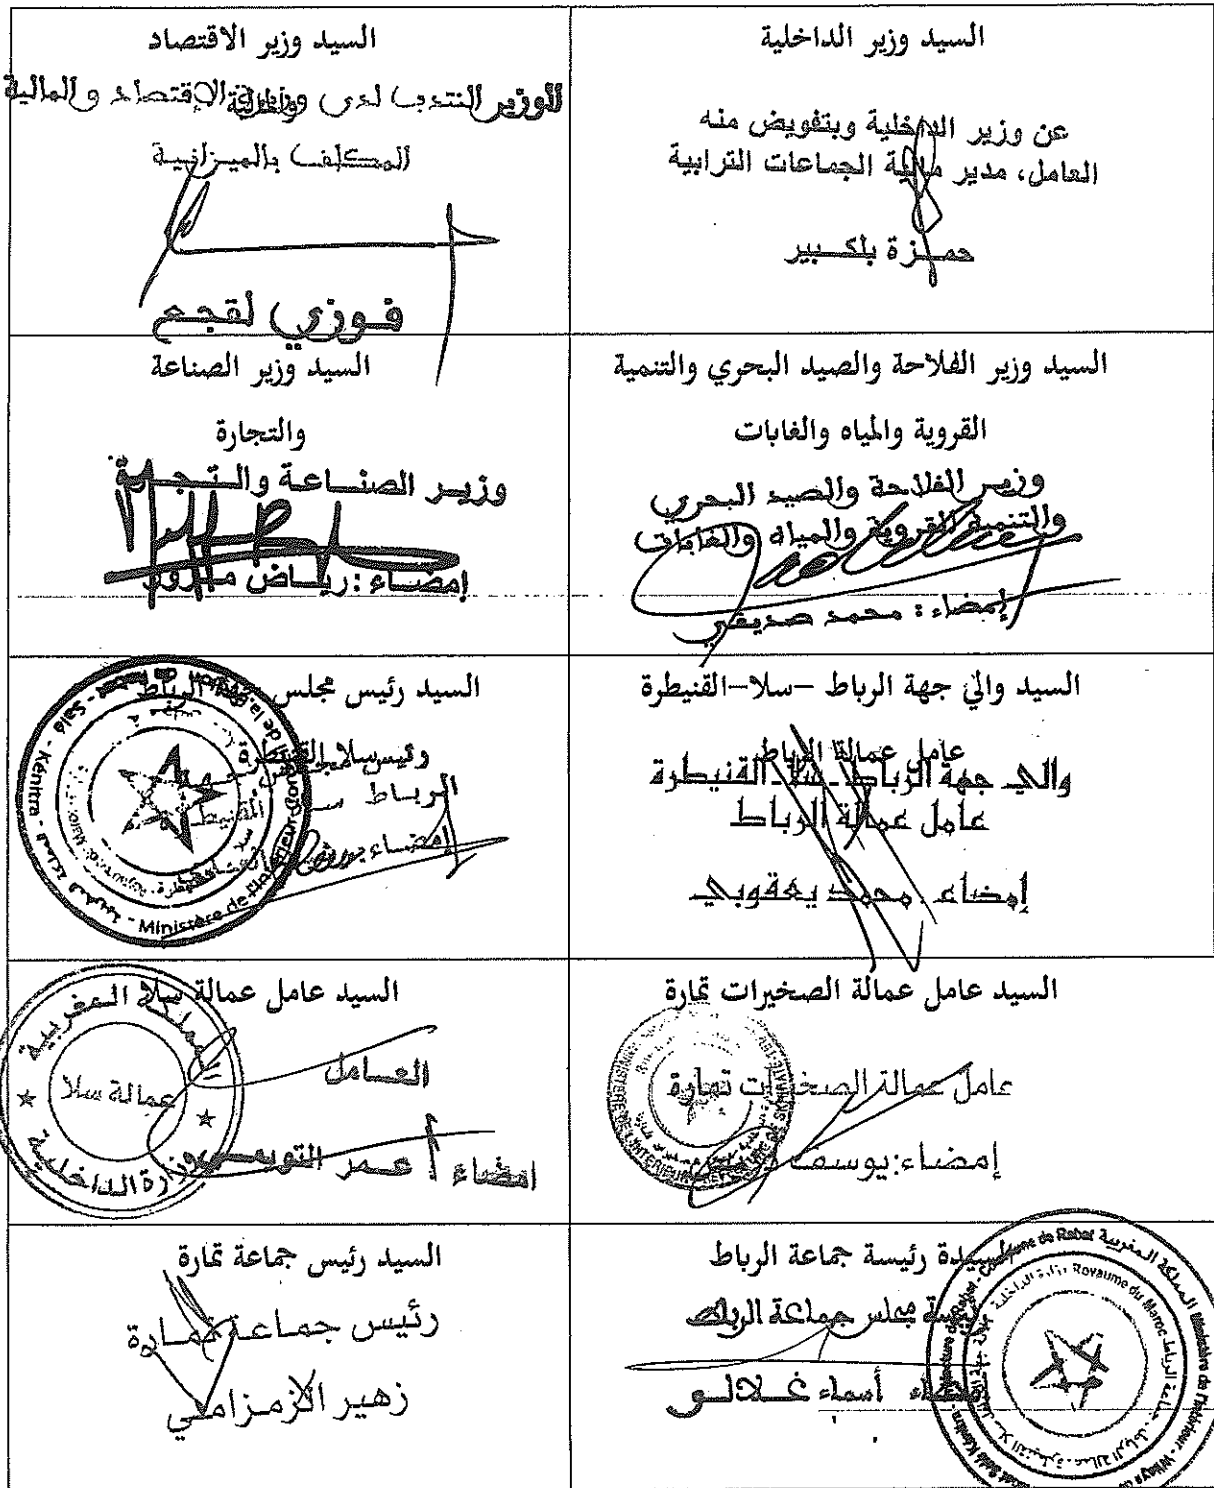 السيد وزير الداخلية
عن وزير الداخلية وبتفويض منه
العامل، مدير مالية الجماعات الترابية
حمزة بلكبير
السيد وزير الاقتصاد
والمالية
الوزير المنتدب لدى وزير الإقتصاد والمالية
المكلف بالميزانية
فوزي لقجع
السيد وزير الفلاحة والصيد البحري والتنمية
القروية والمياه والغابات
وزير الفلاحة والصيد البحري
والتنمية القروية والمياه والغابات
إمضاء : محمد صديقي
السيد وزير الصناعة
والتجارة
وزير الصناعة والتجارة
إمضاء : رياض مزور
السيد والي جهة الرباط –سلا–القنيطرة
عامل عمالة الرباط
والي جهة الرباط - سلا - القنيطرة
عامل عمالة الرباط
إمضاء : محمد يعقوبي
السيد رئيس مجلس جهة الرباط
سلا القنيطرة
رئيس مجلس جهة
الرباط سلا القنيطرة
إمضاء
Salé - Kénitra
Ministère de l'Intérieur
السيد عامل عمالة الصخيرات تمارة
عامل عمالة الصخيرات تمارة
إمضاء: يوسف
السيد عامل عمالة سلا
العامل
امضاء : عمر التويمي
المملكة المغربية
عمالة سلا
وزارة الداخلية
السيدة رئيسة جماعة الرباط
رئيسة مجلس جماعة الرباط
إمضاء أسماء غلالو
المملكة المغربية
Royaume du Maroc
وزارة الداخلية
Commune de Rabat
Ministère de l'Intérieur
السيد رئيس جماعة تمارة
رئيس جماعة تمارة
زهير الزمزامي